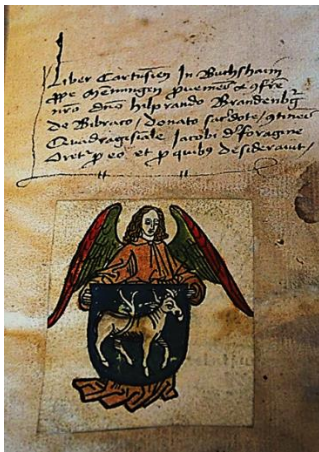 Liber Cartusien̄ In Buchshaim
ꝓpe Memmingen ꝓveniens a ꝯfr̄e
nr̄o dn̄o hilprando Brandenbg̃
de Bibraco / Donato sacdote / ꝯtinēs
Quadragesiale Jacobi d' foragine
Oretr̄ ꝓ eo et ꝓ quibꝰ desideravit /